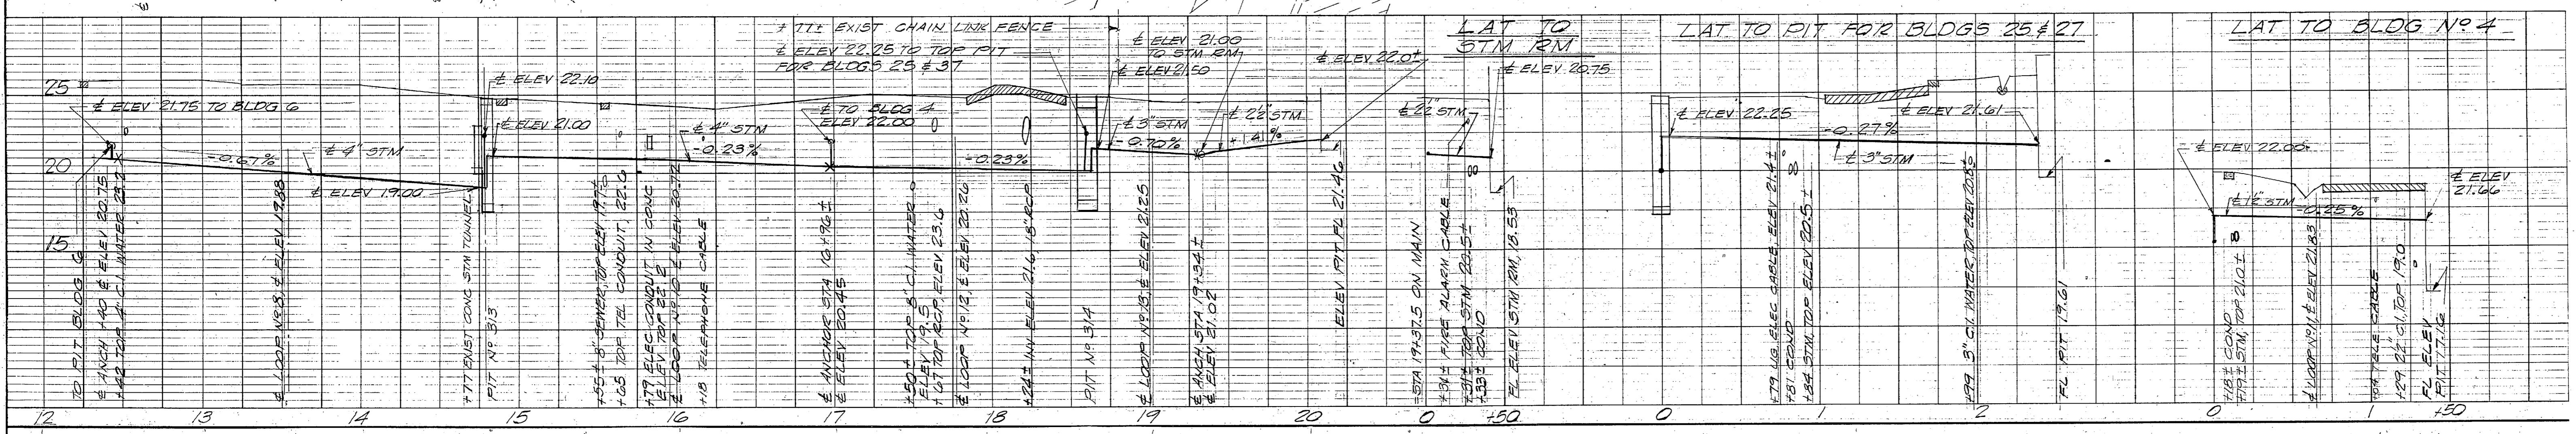 +77± EXIST CHAIN LINK FENCE
℄ ELEV 22.25 TO TOP PIT
FOR BLDGS 25 & 37
℄ ELEV 21.00
TO STM RM
℄ ELEV 21.50
℄ ELEV 22.0±
LAT TO
STM RM
LAT TO PIT FOR BLDGS 25 & 27
LAT TO BLDG Nº 4
25
20
15
℄ ELEV 21.75 TO BLDG 6
℄ ELEV 22.10
℄ ELEV 21.00
-0.67%
℄ 4" STM
℄ ELEV 19.00
℄ 4" STM
-0.23%
℄ TO BLDG 4
ELEV 22.00
-0.23%
℄ 3" STM
-0.70%
℄ 2½" STM
℄ ELEV 20.75
℄ ELEV 22.25
℄ ELEV 21.61
-0.27%
℄ 3" STM
℄ ELEV 22.00
-0.25%
℄ ELEV
21.66
TO PIT BLDG 6
℄ ANCH +40 ℄ ELEV 20.75
+42 TOP 4" C.I. WATER 23.2
℄ LOOP Nº 8, ℄ ELEV 19.88
+77 EXIST CONC STM TUNNEL
PIT Nº 313
+55± 8" SEWER, TOP ELEV 19.7±
+65 TOP TEL CONDUIT, 22.6
+79 ELEC CONDUIT IN CONC
ELEV TOP 22.2
℄ LOOP Nº 10 ℄ ELEV 20.72
+18 TELEPHONE CABLE
℄ ANCHOR STA 16+96±
℄ ELEV 20.45
+50± TOP 8" C.I. WATER
ELEV 19.5
+67 TOP RCP, ELEV 23.6
℄ LOOP Nº 12, ℄ ELEV 20.26
+24± INV ELEV 21.6, 18" RCP
PIT Nº 314
℄ LOOP Nº 13, ℄ ELEV 21.25
℄ ANCH STA 19+34±
℄ ELEV 21.02
ELEV PIT FL 21.46
=STA 19+37.5 ON MAIN
+31± FIRE ALARM CABLE
+31± TOP STM 20.5±
+33± COND
FL ELEV STM RM, 18.53
+79 UG ELEC CABLE, ELEV 21.4±
+81 COND
+84 STM, TOP ELEV 20.5±
+99 3" C.I. WATER, TOP ELEV 20.8±
FL PIT 19.61
+18± COND
+19± STM, TOP 21.0±
℄ LOOP Nº 11, ℄ ELEV 21.83
TELE CABLE
+29 2½" C.I, TOP 19.0
FL ELEV
PIT 17.16
12 13 14 15 16 17 18 19 20 0 +50 0 1 2 0 1 +50